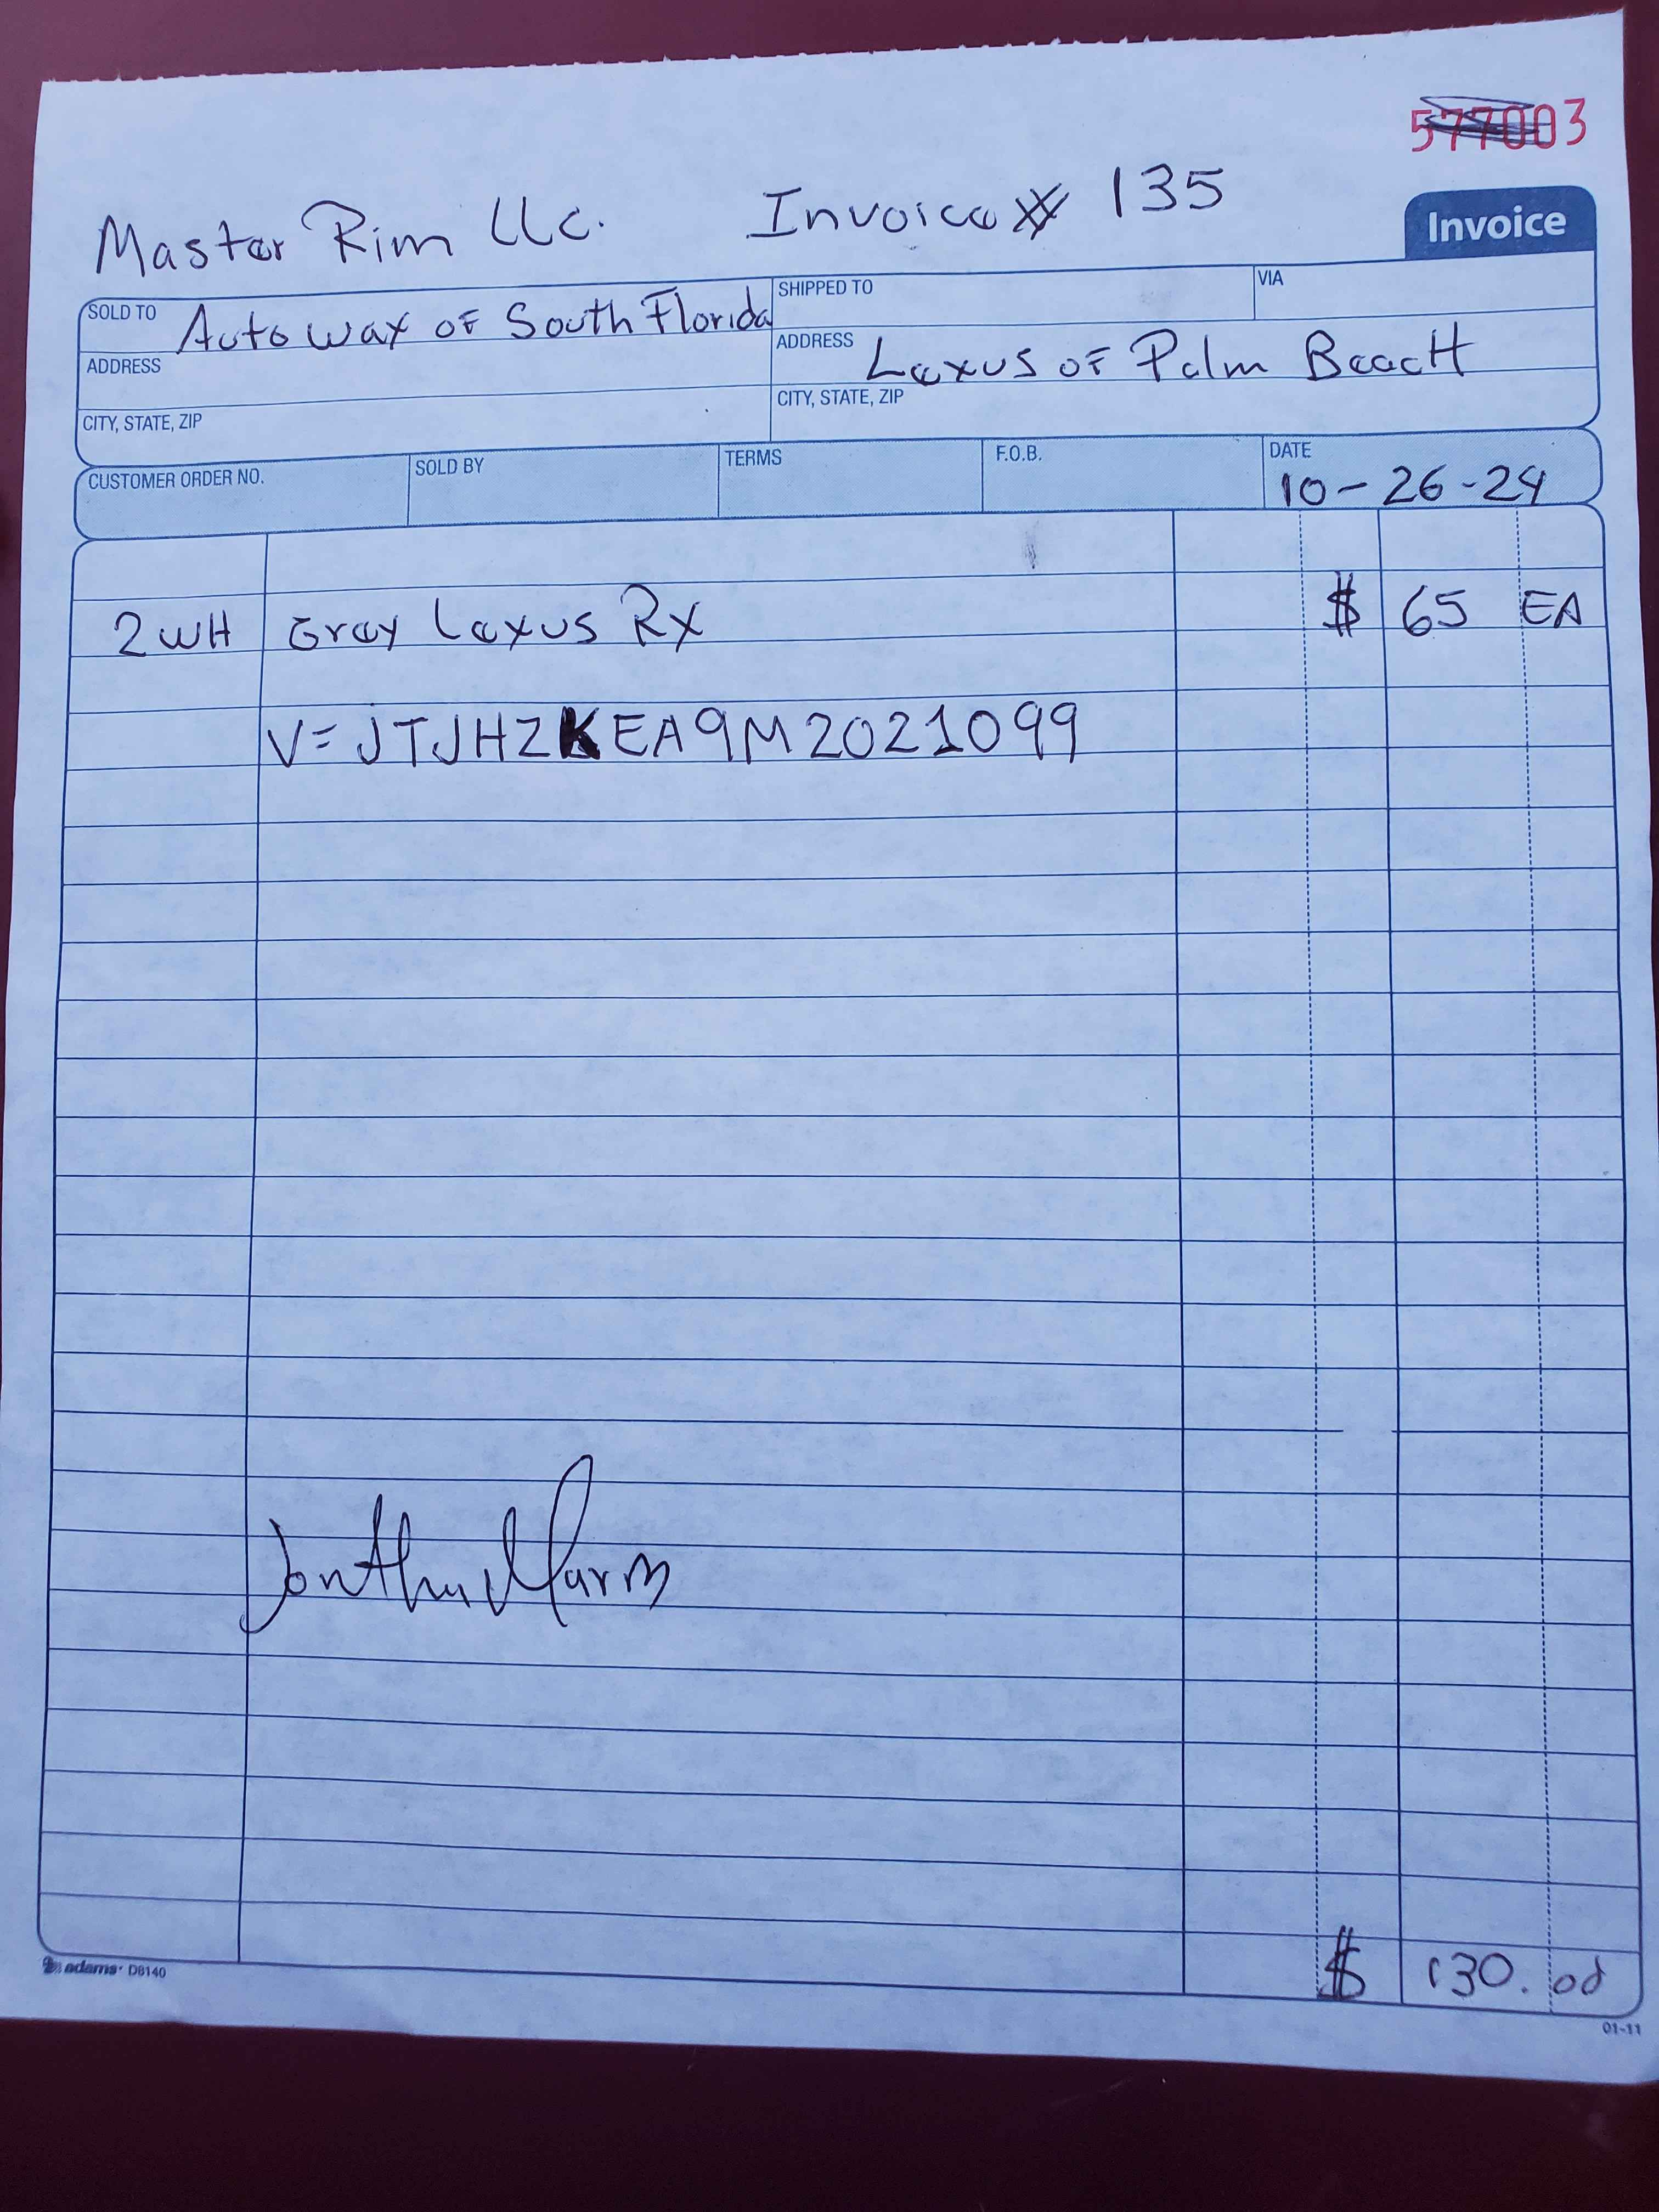 577003
Master Rim LLC. Invoice # 135
Invoice
SOLD TO Auto Wax OF South Florida
SHIPPED TO
VIA
ADDRESS
ADDRESS Lexus OF Palm BeacH
CITY, STATE, ZIP
CITY, STATE, ZIP
CUSTOMER ORDER NO.
SOLD BY
TERMS
F.O.B.
DATE 10-26-24
2 WH Gray Lexus Rx $ 65 EA
V=JTJHZKEA9M2021099
$ 130.00
adams D8140
01-11